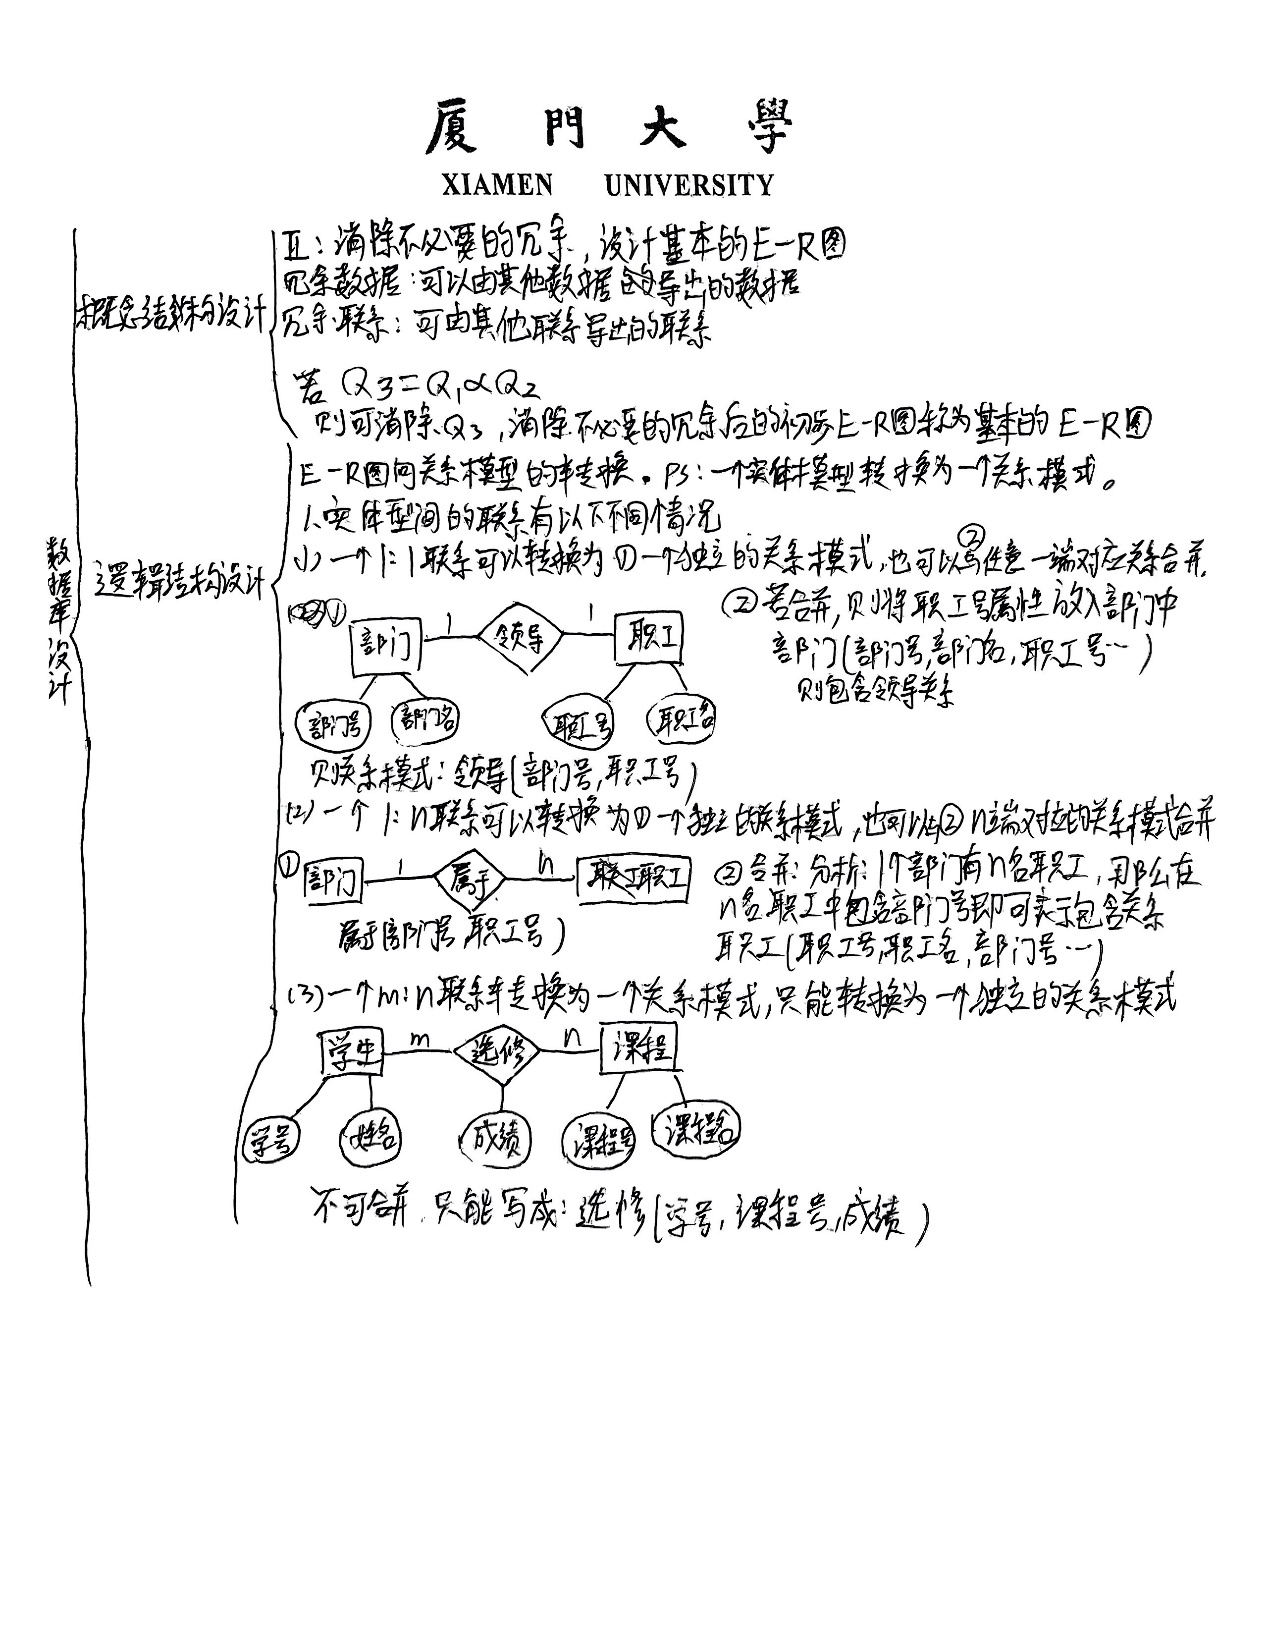 厦門大學
XIAMEN UNIVERSITY
数据库设计
概念结构设计
五:消除不必要的冗余,设计基本的E-R图
冗余数据:可以由其他数据导出的数据
冗余联系:可由其他联系导出的联系
若 Q3=Q1∝Q2
则可消除Q3,消除不必要的冗余后的初步E-R图称为基本的E-R图
逻辑结构设计
E-R图向关系模型的转换。PS:一个实体模型转换为一个关系模式。
1、实体型间的联系有以下不同情况
(1)一个1:1联系可以转换为①一个独立的关系模式,也可以②与任意一端对应关系合并.
① 部门 1 领导 1 职工
部门号 部门名 职工号 职工名
②若合并,则将职工号属性放入部门中
部门(部门号,部门名,职工号…)
则包含领导关系
则关系模式:领导(部门号,职工号)
(2)一个1:n联系可以转换为①一个独立的关系模式,也可以与②n端对应的关系模式合并
① 部门 1 属于 n 职工
属于(部门号,职工号)
②合并:分析:1个部门有n名职工,那么在
n名职工中包含部门号即可表示包含关系
职工(职工号,职工名,部门号…)
(3)一个m:n联系转换为一个关系模式,只能转换为一个独立的关系模式
学生 m 选修 n 课程
学号 姓名 成绩 课程号 课程名
不可合并.只能写成:选修(学号,课程号,成绩)